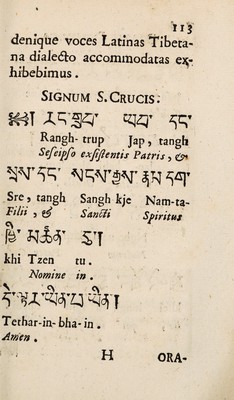 113
denique voces Latinas Tibeta-
na dialecto accommodatas ex-
hibebimus.
SIGNUM S. CRUCIS.
༄༅། རང་གྲུབ་ ཡབ་ དང་
Rangh-trup Jap, tangh
Seseipso existentis Patris, &
སྲས་དང་ སངས་རྒྱས་ རྣམ་དག་
Sre, tangh Sangh kje Nam-ta-
Filii, & Sancti Spiritus
ཁྱི་ མཚན་ ཏུ།
khi Tzen tu.
Nomine in.
དེ་ལྟར་ཡིན་པ་ཡིན།
Tethar-in-bha-in.
Amen.
H ORA-